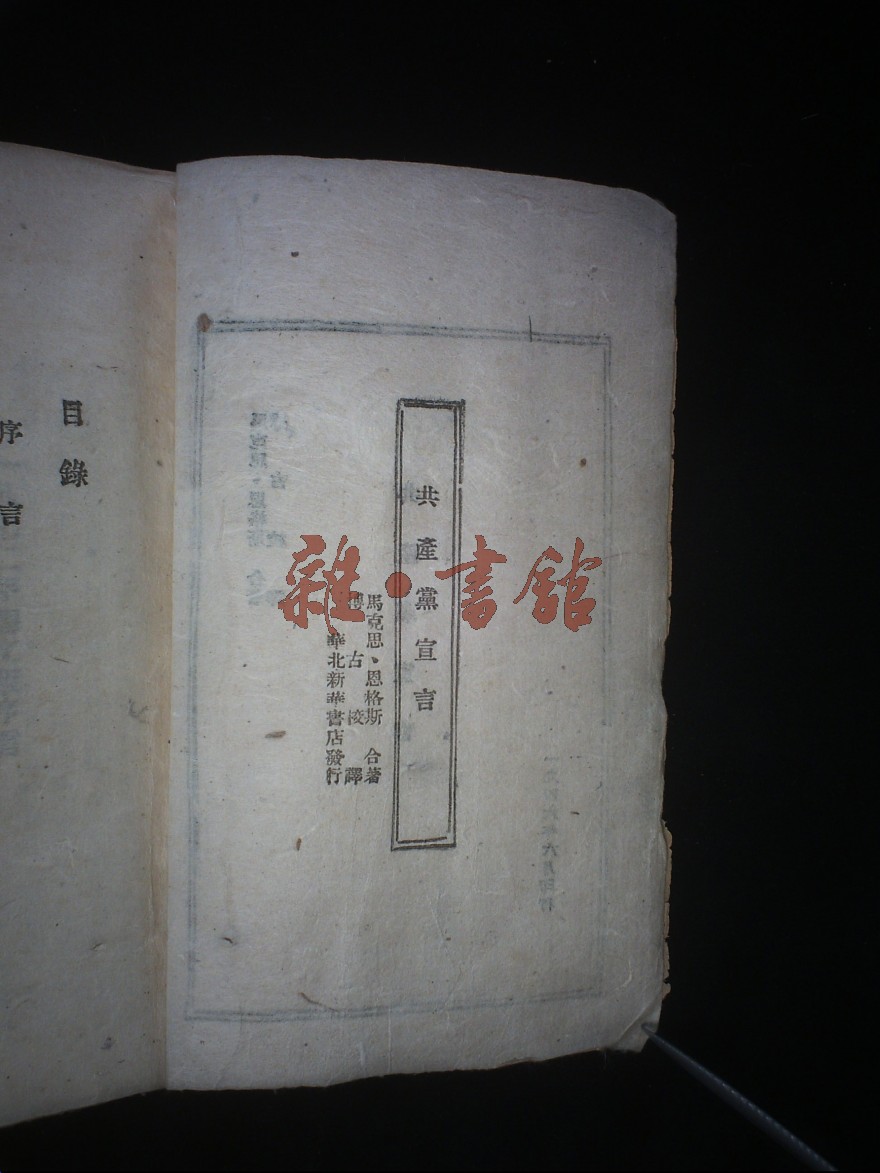 共產黨宣言
馬克思、恩格斯 合著
博古 校譯
華北新華書店發行
目錄
序言
雜·書館